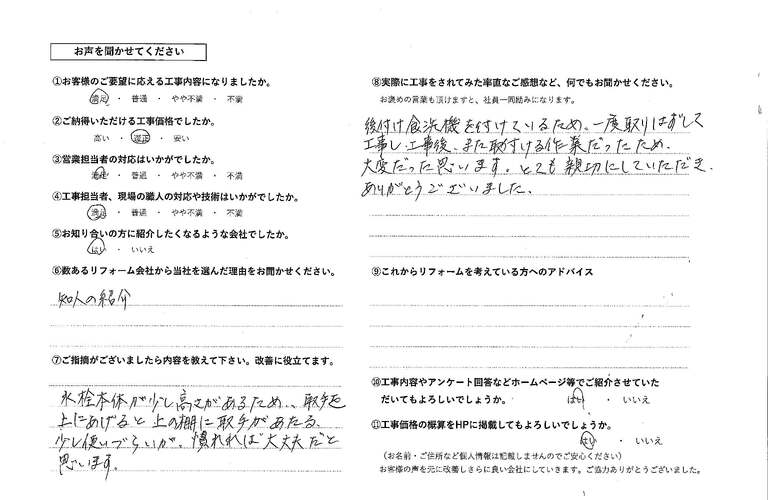 お声を聞かせてください
①お客様のご要望に応える工事内容になりましたか。
満足 ・ 普通 ・ やや不満 ・ 不満
②ご納得いただける工事価格でしたか。
高い ・ 適正 ・ 安い
③営業担当者の対応はいかがでしたか。
満足 ・ 普通 ・ やや不満 ・ 不満
④工事担当者、現場の職人の対応や技術はいかがでしたか。
満足 ・ 普通 ・ やや不満 ・ 不満
⑤お知り合いの方に紹介したくなるような会社でしたか。
はい ・ いいえ
⑥数あるリフォーム会社から当社を選んだ理由をお聞かせください。
知人の紹介
⑦ご指摘がございましたら内容を教えて下さい。改善に役立てます。
水栓本体が少し高さがあるため、取手を
上にあげると上の棚に取手があたる、
少し使いづらいが、慣れれば大丈夫だと
思います。
⑧実際に工事をされてみた率直なご感想など、何でもお聞かせください。
お褒めの言葉も頂けますと、社員一同励みになります。
後付け食洗機を付けているため、一度取りはずして
工事し、工事後、また取付ける作業だったため、
大変だった思います。とても親切にしていただき、
ありがとうございました。
⑨これからリフォームを考えている方へのアドバイス
⑩工事内容やアンケート回答などホームページ等でご紹介させていた
だいてもよろしいでしょうか。 はい ・ いいえ
⑪工事価格の概算をHPに掲載してもよろしいでしょうか。
はい ・ いいえ
（お名前・ご住所など個人情報は記載しませんのでご安心ください）
お客様の声を元に改善しさらに良い会社にしていきます。ご協力ありがとうございました。